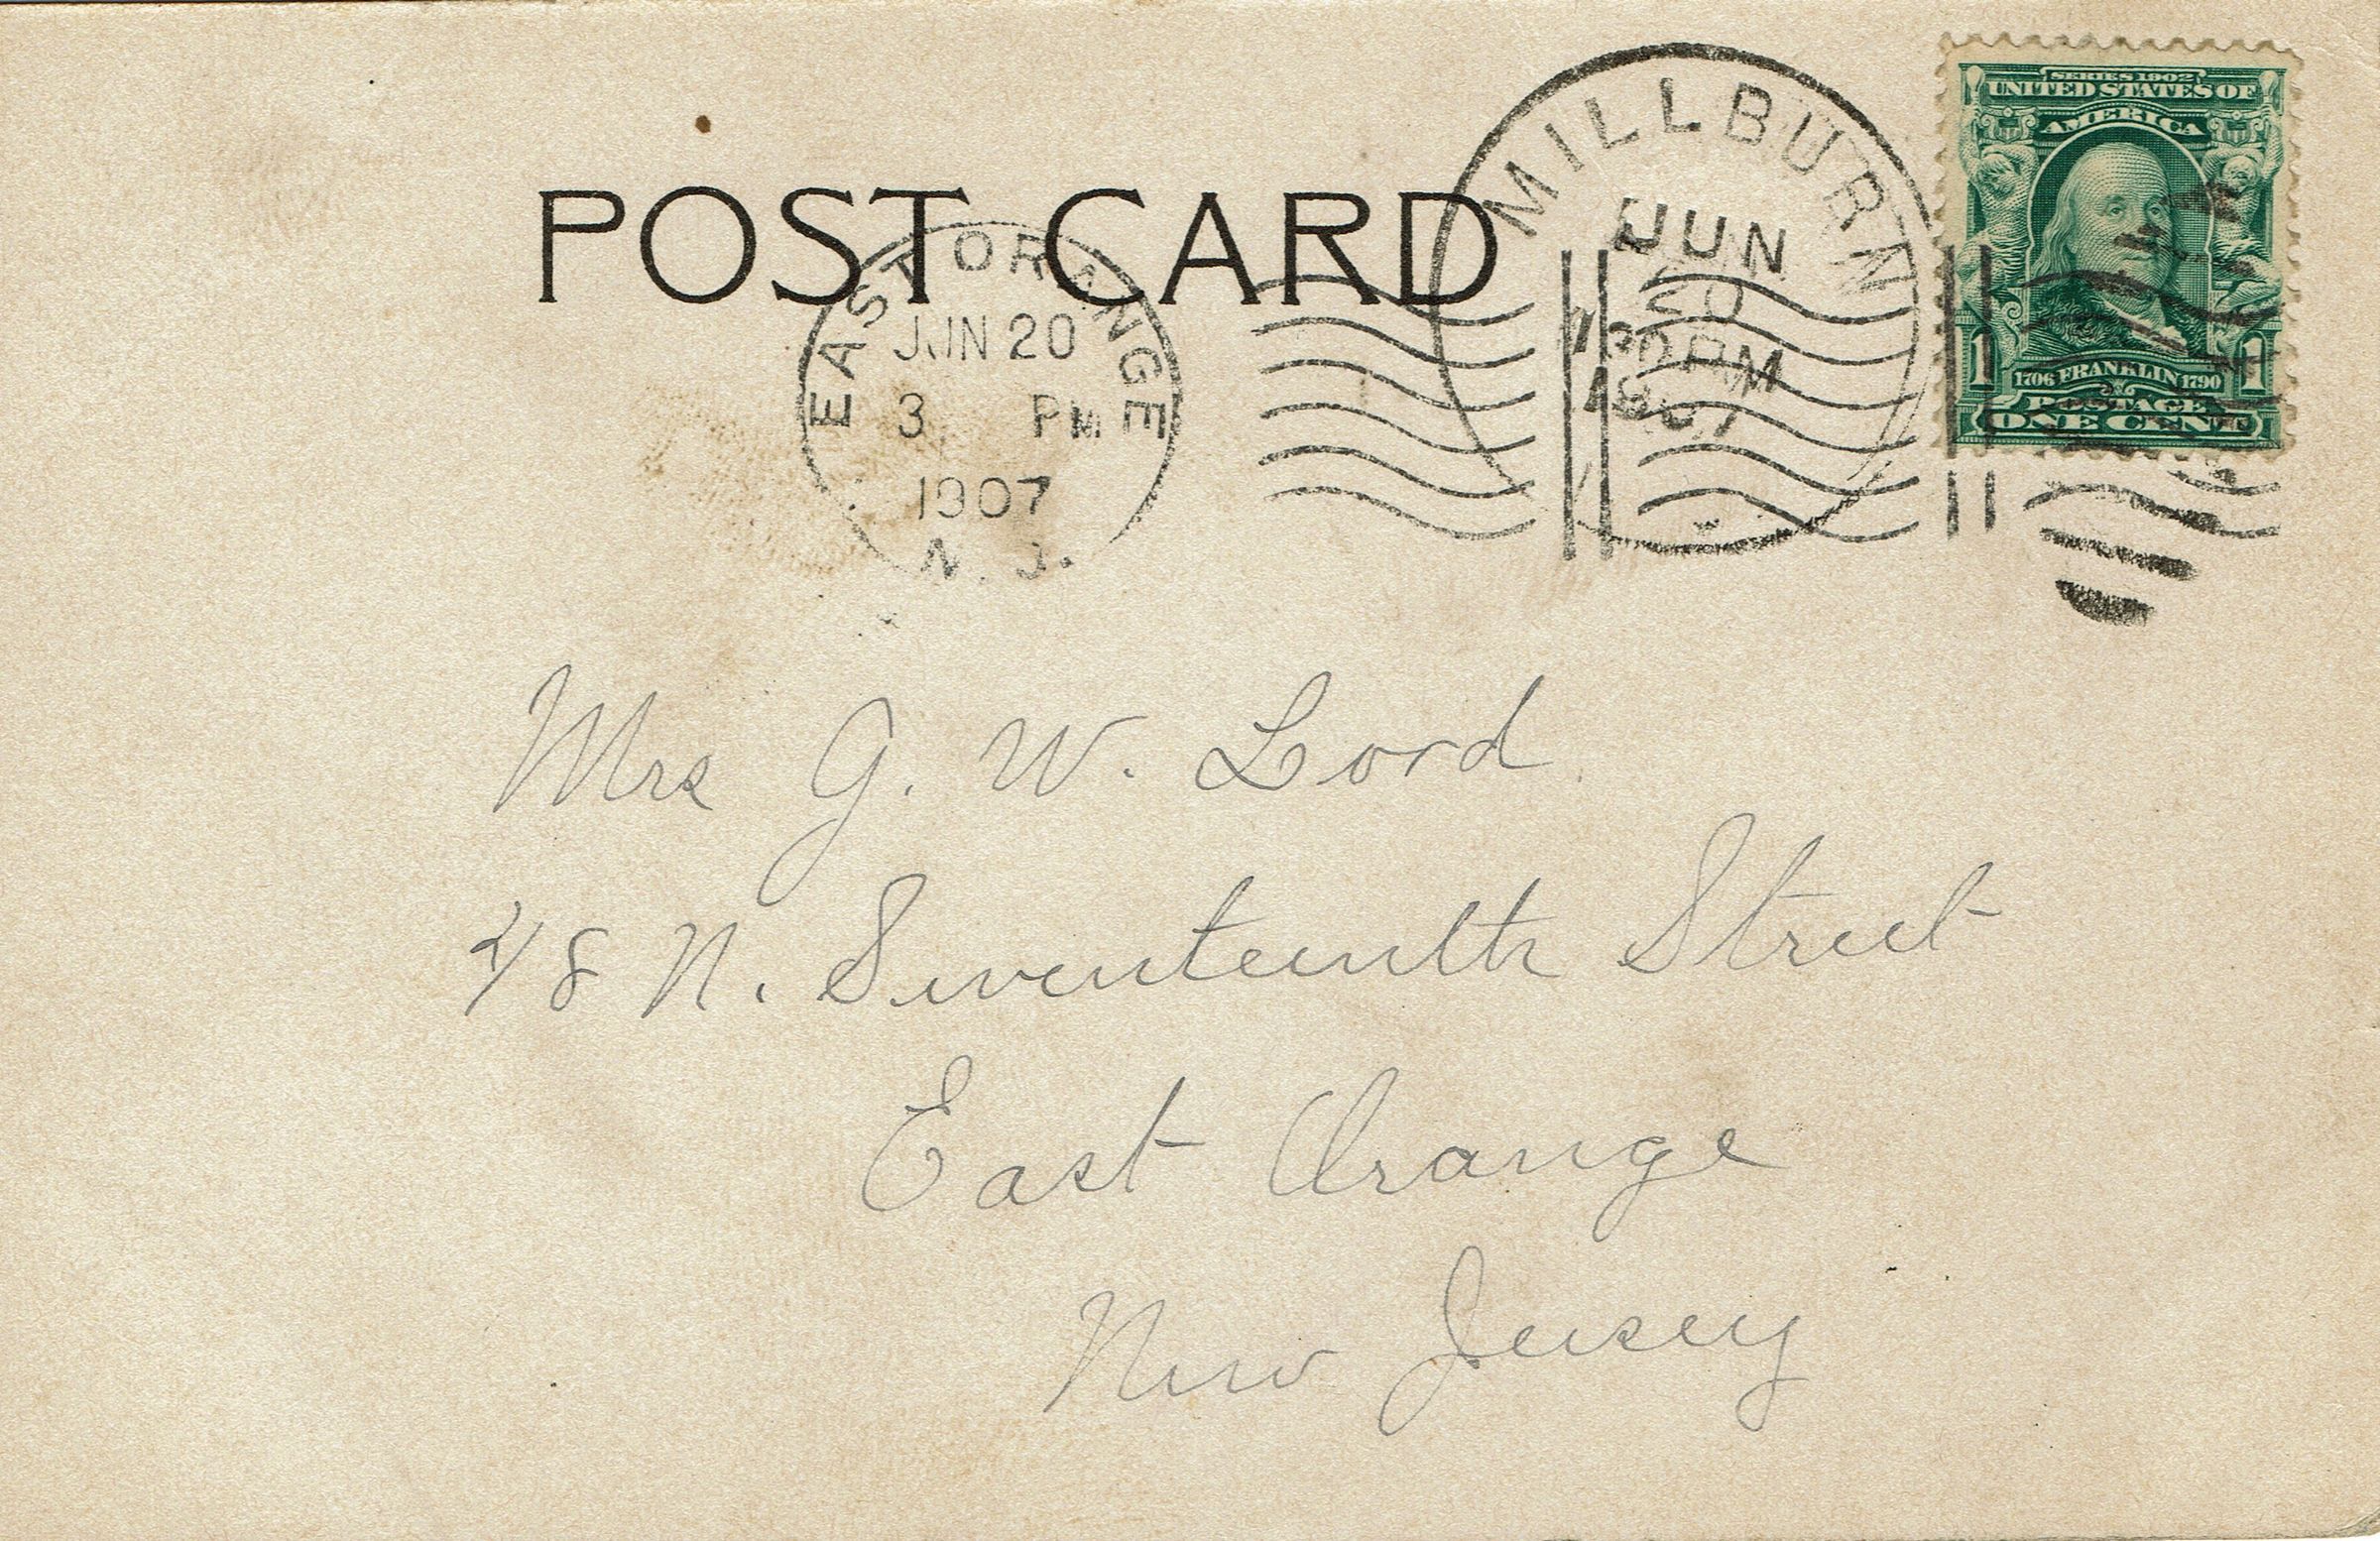 POST CARD
EAST ORANGE
JUN 20
3 PM
1907
N. J.
MILLBURN
JUN
20
PM
1907
SERIES 1902
UNITED STATES OF
AMERICA
1 1
1706 FRANKLIN 1790
POSTAGE
ONE CENT
Mrs G. W. Lord
48 N. Seventeenth Street
East Orange
New Jersey